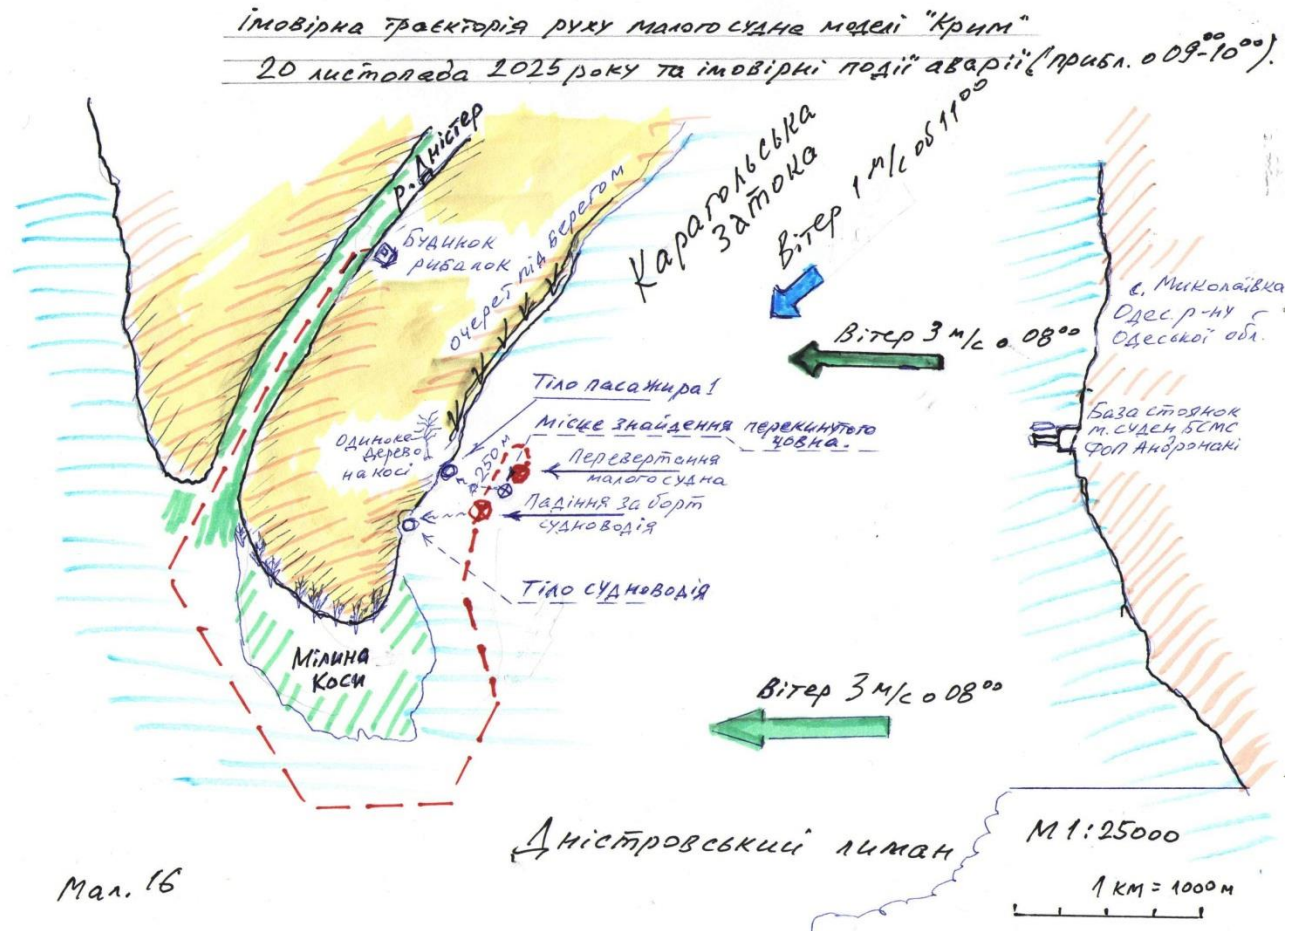 імовірна траєкторія руху малого судна моделі "Крим"
20 листопада 2025 року та імовірні події аварії (прибл. о 09-10⁰⁰).
р. Дністер
Будинок
рибалок
очерет під берегом
Карагольська
затока
Вітер 1 м/с об 11⁰⁰
Вітер 3 м/с о 08⁰⁰
с. Миколаївка
Одес. р-ну
Одеської обл.
База стоянок
м. суден БСМС
ФОП Андронакі
Тіло пасажира 1
Місце знайдення перекинутого
човна.
Одиноке
дерево
на косі
250 м
Перевертання
малого судна
Падіння за борт
судноводія
Тіло судноводія
Мілина
Коси
Вітер 3 м/с о 08⁰⁰
Дністровський лиман
М 1:25000
1 км = 1000 м
Мал. 16